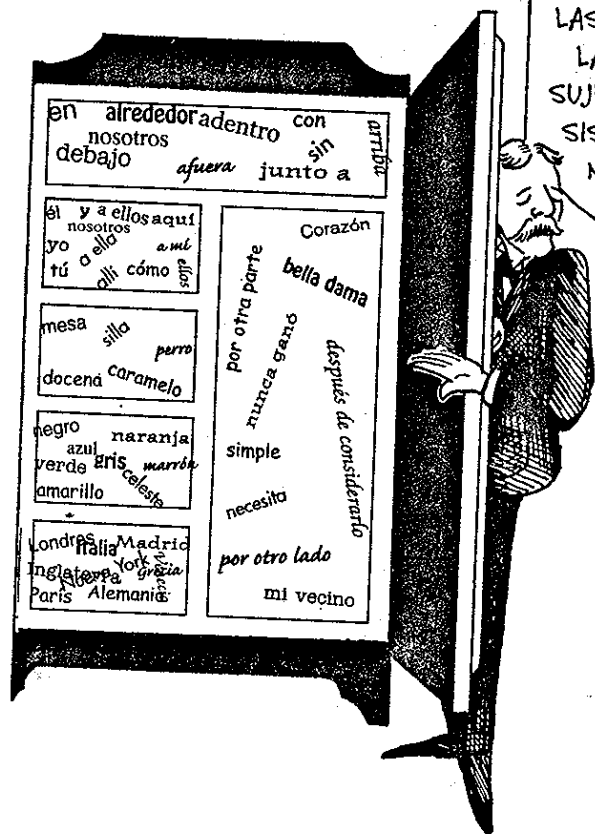 LAS
LA
SUJ
SIS
en alrededor adentro con arriba
nosotros sin
debajo afuera junto a
él y a ellos aquí
nosotros
yo a ella a mí ellos
tú allí cómo
mesa silla perro
docena caramelo
negro naranja
azul
verde gris marrón
amarillo celeste
Londres Italia Madrid
Inglaterra Nueva York Grecia
París Alemania
Corazón
por otra parte
bella dama
nunca ganó
después de considerarlo
simple
necesita
por otro lado
mi vecino